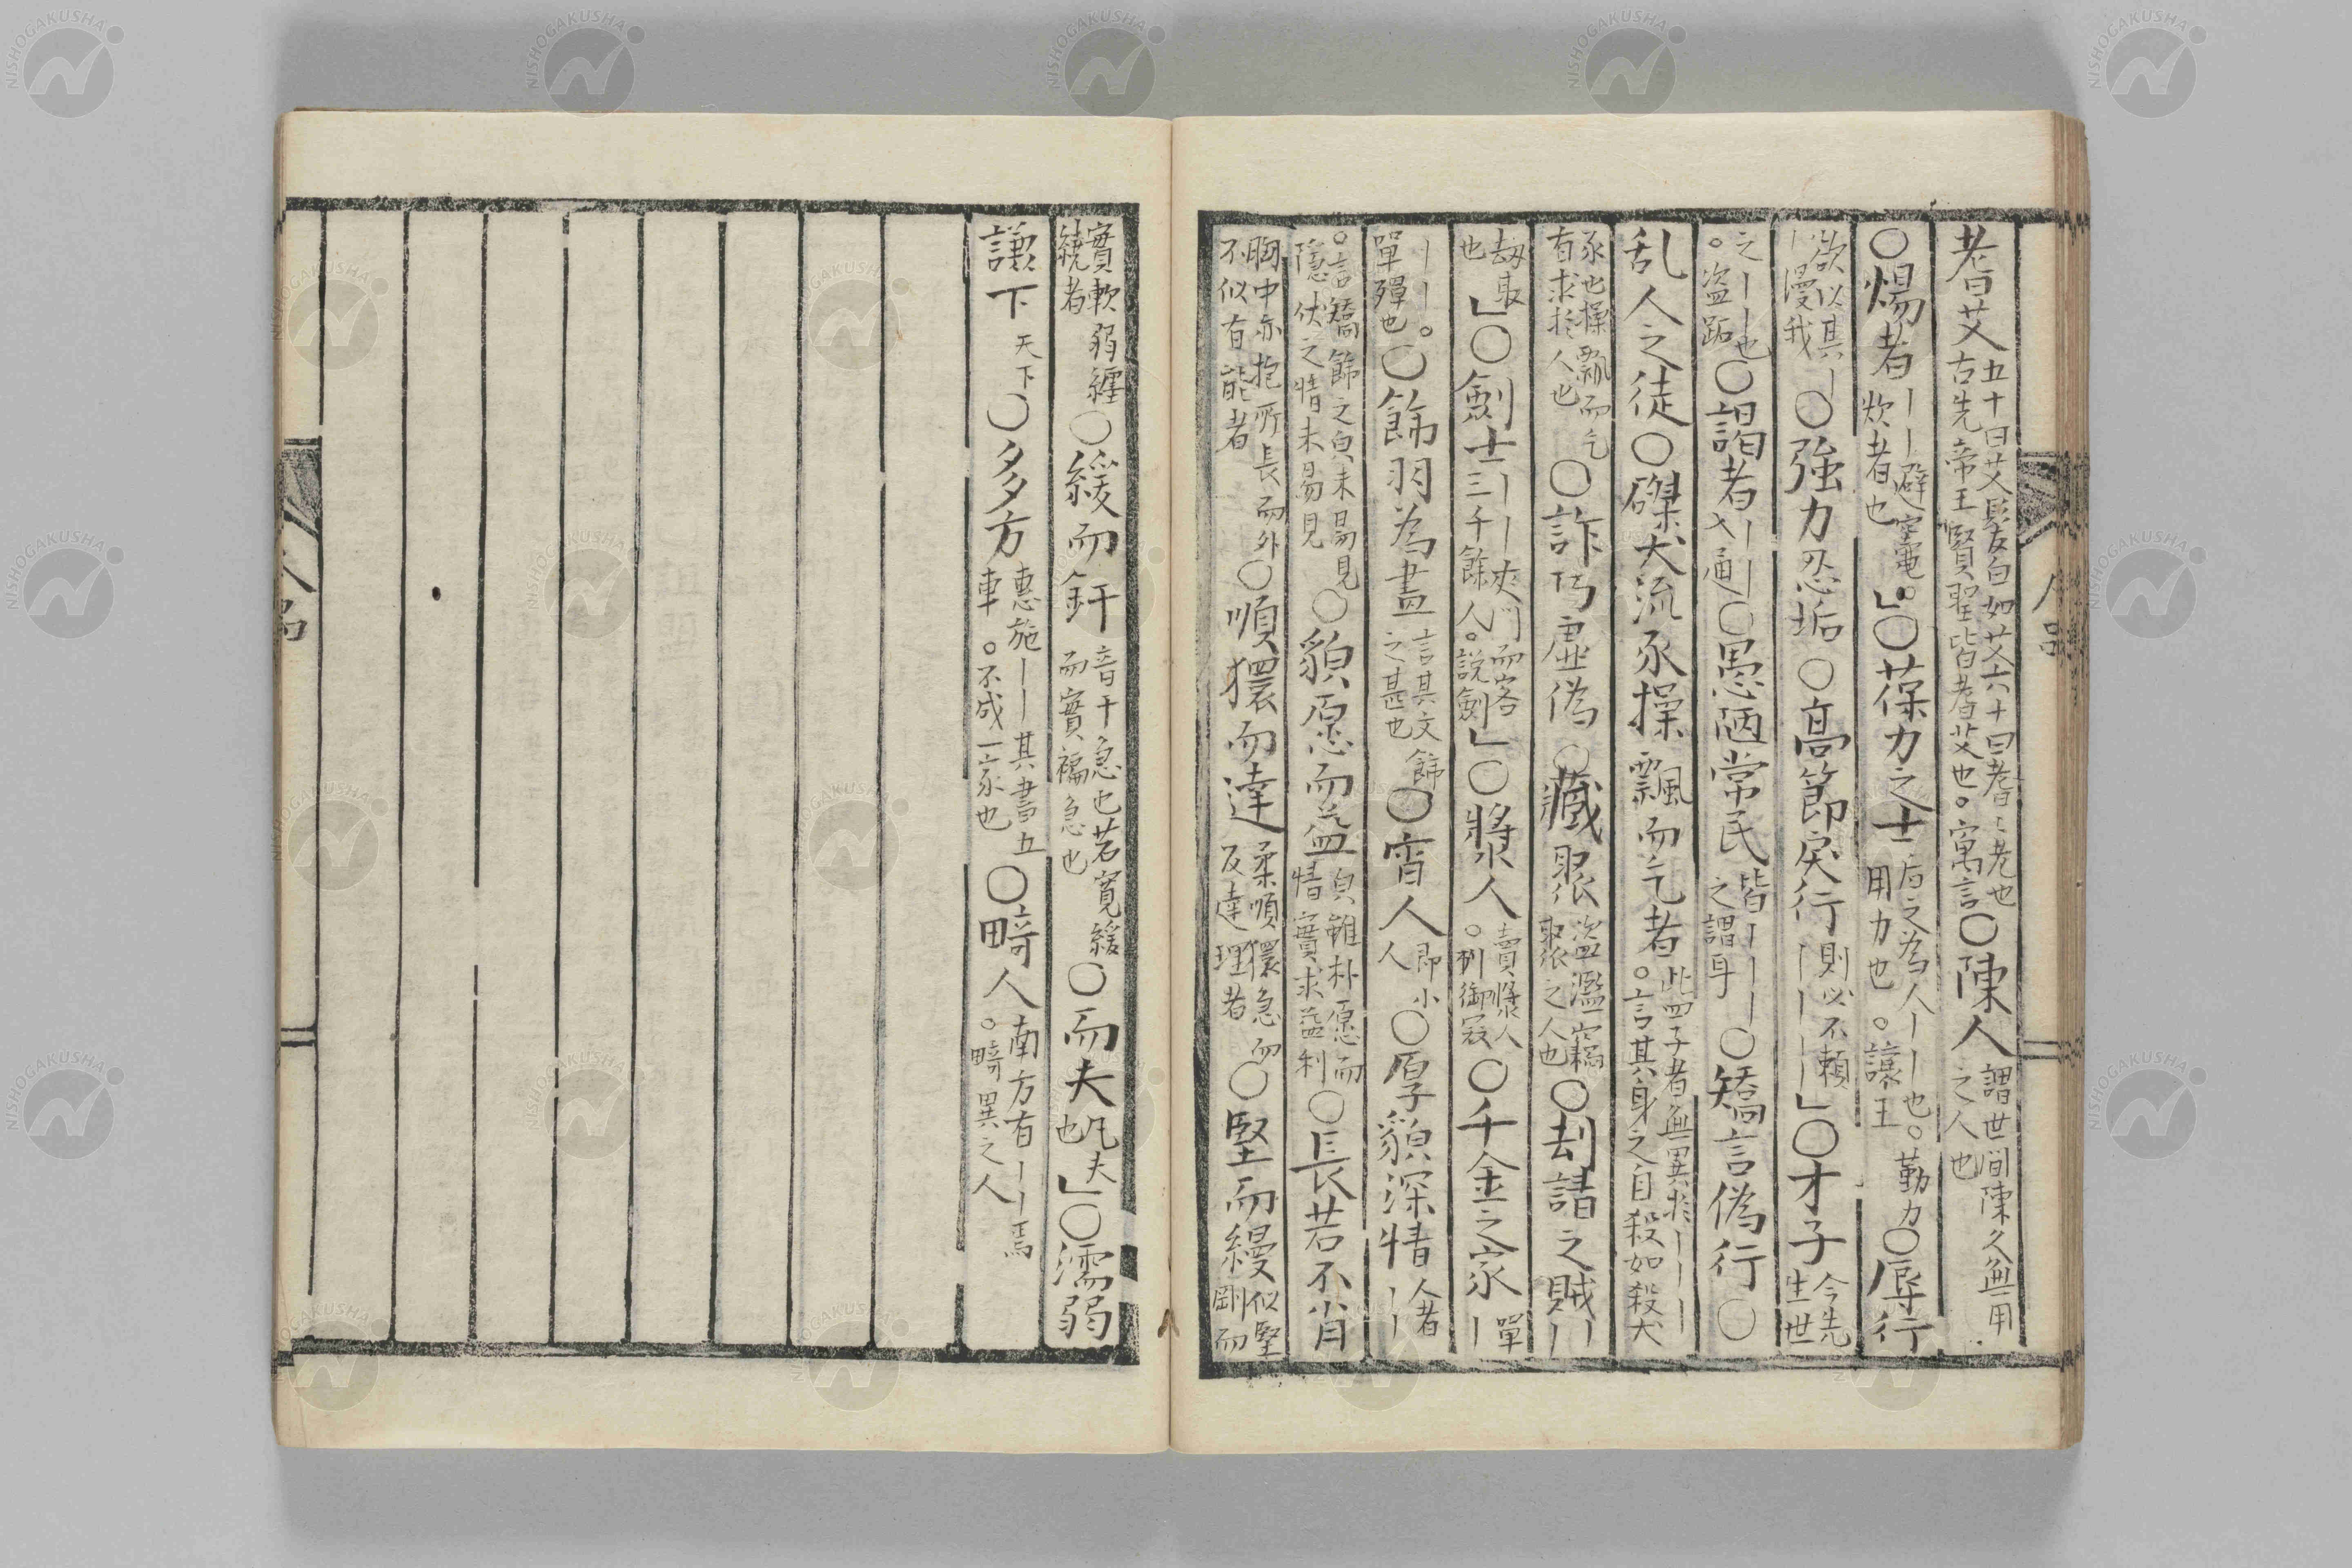 耆艾 五十曰艾髮白如艾六十曰耆〻老也 古先帝王賢聖皆耆艾也。寓言 〇陳人 謂世间陳久無用 之人也
〇煬者 ｜｜避竈。 炊者也 」〇葆力之士 后之為人｜｜也。勤力 用力也。讓王 〇辱行
欲以其｜ ｜漫我 〇強力忍垢 〇高節戾行 則必不賴 ｜｜｜｜ 」〇才子 今先 生世
之｜｜也 。盗跖 〇謁者 〇愚陋常民 皆｜｜｜｜ 之謂耳 〇矯言偽行〇
乱人之徒〇磔犬流豕操飄而乞者 此四子者無異於｜｜｜ 。言其身之自殺如殺犬
豕也操飄而乞 有求於人也 〇詐巧虚偽 〇藏聚 盗濫窃 聚之人也 〇刦請之賊｜
劫取 也 」〇劍士 ｜｜夾门而客 三千餘人。説劍 」〇漿人 賣漿人 。列御寇 〇千金之家 單 ｜
｜｜。 單殫也 〇飾羽為畫 言其文飾 之甚也 〇宵人 即小 人 〇厚貌深情 人者 ｜｜
。言矯飾之皃未易見 隱伏之情未易見 〇貌愿而益 皃雖朴愿而 情實求益利 〇長若不肖
胸中亦抱所長而外 不似有能者 〇順獧而達 柔順獧急而 反達理者 〇堅而縵 似堅 剛而
實軟弱纏 繞者 〇緩而釬 音干急也若寛緩 而實褊急也 〇而夫 凡夫 也 」〇濡弱
謙下 天下 〇多方 惠施｜｜其書五 車。不成一家也 〇畸人 南方有｜｜焉 。畸異之人
人品
NISHOGAKUSHA